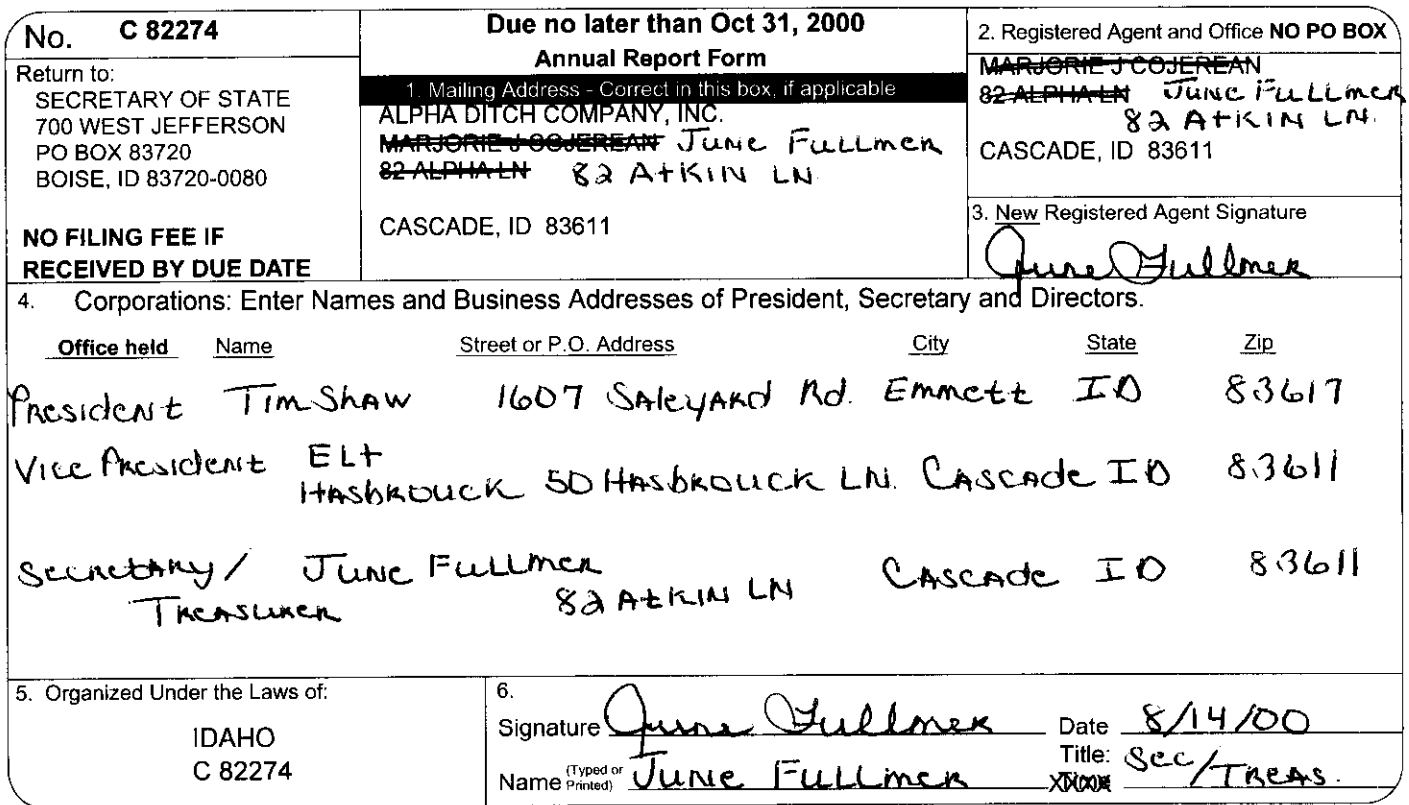 No. C 82274
Return to:
SECRETARY OF STATE
700 WEST JEFFERSON
PO BOX 83720
BOISE, ID 83720-0080
NO FILING FEE IF
RECEIVED BY DUE DATE
Due no later than Oct 31, 2000
Annual Report Form
1. Mailing Address - Correct in this box, if applicable
ALPHA DITCH COMPANY, INC.
MARJORIE J COJEREAN June Fullmer
82 ALPHA LN 82 Atkin LN
CASCADE, ID 83611
2. Registered Agent and Office NO PO BOX
MARJORIE J COJEREAN
82 ALPHA LN June Fullmer
82 Atkin LN.
CASCADE, ID 83611
3. New Registered Agent Signature
June Fullmer
4. Corporations: Enter Names and Business Addresses of President, Secretary and Directors.
Office held Name Street or P.O. Address City State Zip
President Tim Shaw 1607 Saleyard Rd. Emmett ID 83617
Vice President Elt
Hasbrouck 50 Hasbrouck LN. Cascade ID 83611
Secretary / June Fullmer Cascade ID 83611
Treasurer 82 Atkin LN
5. Organized Under the Laws of:
IDAHO
C 82274
6.
Signature June Fullmer Date 8/14/00
Name (Typed or Printed) June Fullmer Title: Sec/Treas.